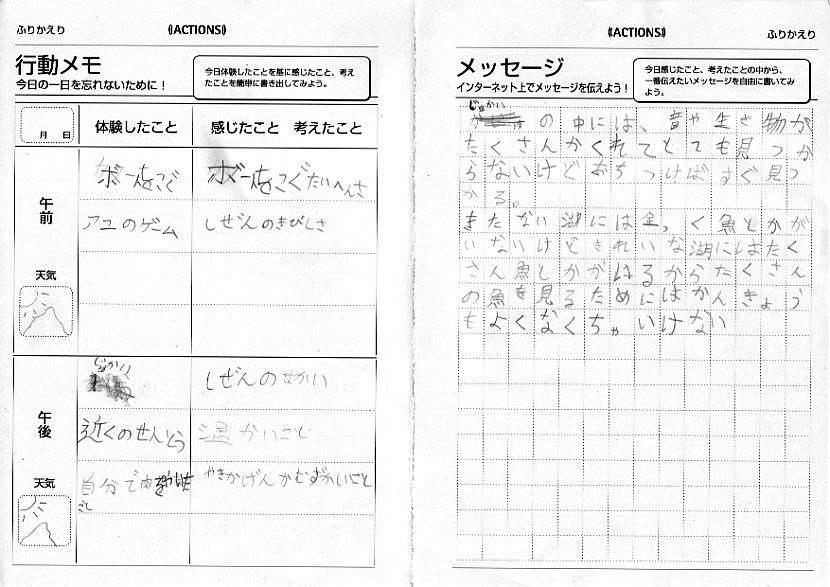 ふりかえり
《ACTIONS》
行動メモ
今日の一日を忘れないために！
今日体験したことを基に感じたこと、考え
たことを簡単に書き出してみよう。
月 日
体験したこと
感じたこと 考えたこと
午前
天気
ボートをこぐ
ボートをこぐたいへんさ
アユのゲーム
しぜんのきびしさ
午後
天気
じゅかい
しぜんのせかい
近くのせんとう
温かいこと
自分で肉を
やきかげんがむずかしいこと
《ACTIONS》
ふりかえり
メッセージ
インターネット上でメッセージを伝えよう！
今日感じたこと、考えたことの中から、
一番伝えたいメッセージを自由に書いてみ
よう。
じゅかい
の中には、音や生き物が
たくさんかくれてとても見つか
らないけどおちつけばすぐ見つ
かる。
きたない湖には全く魚とかが
いないけどきれいな湖にはたく
さん魚とかがいるからたくさん
の魚を見るためにはかんきょう
もよくなくちゃいけない